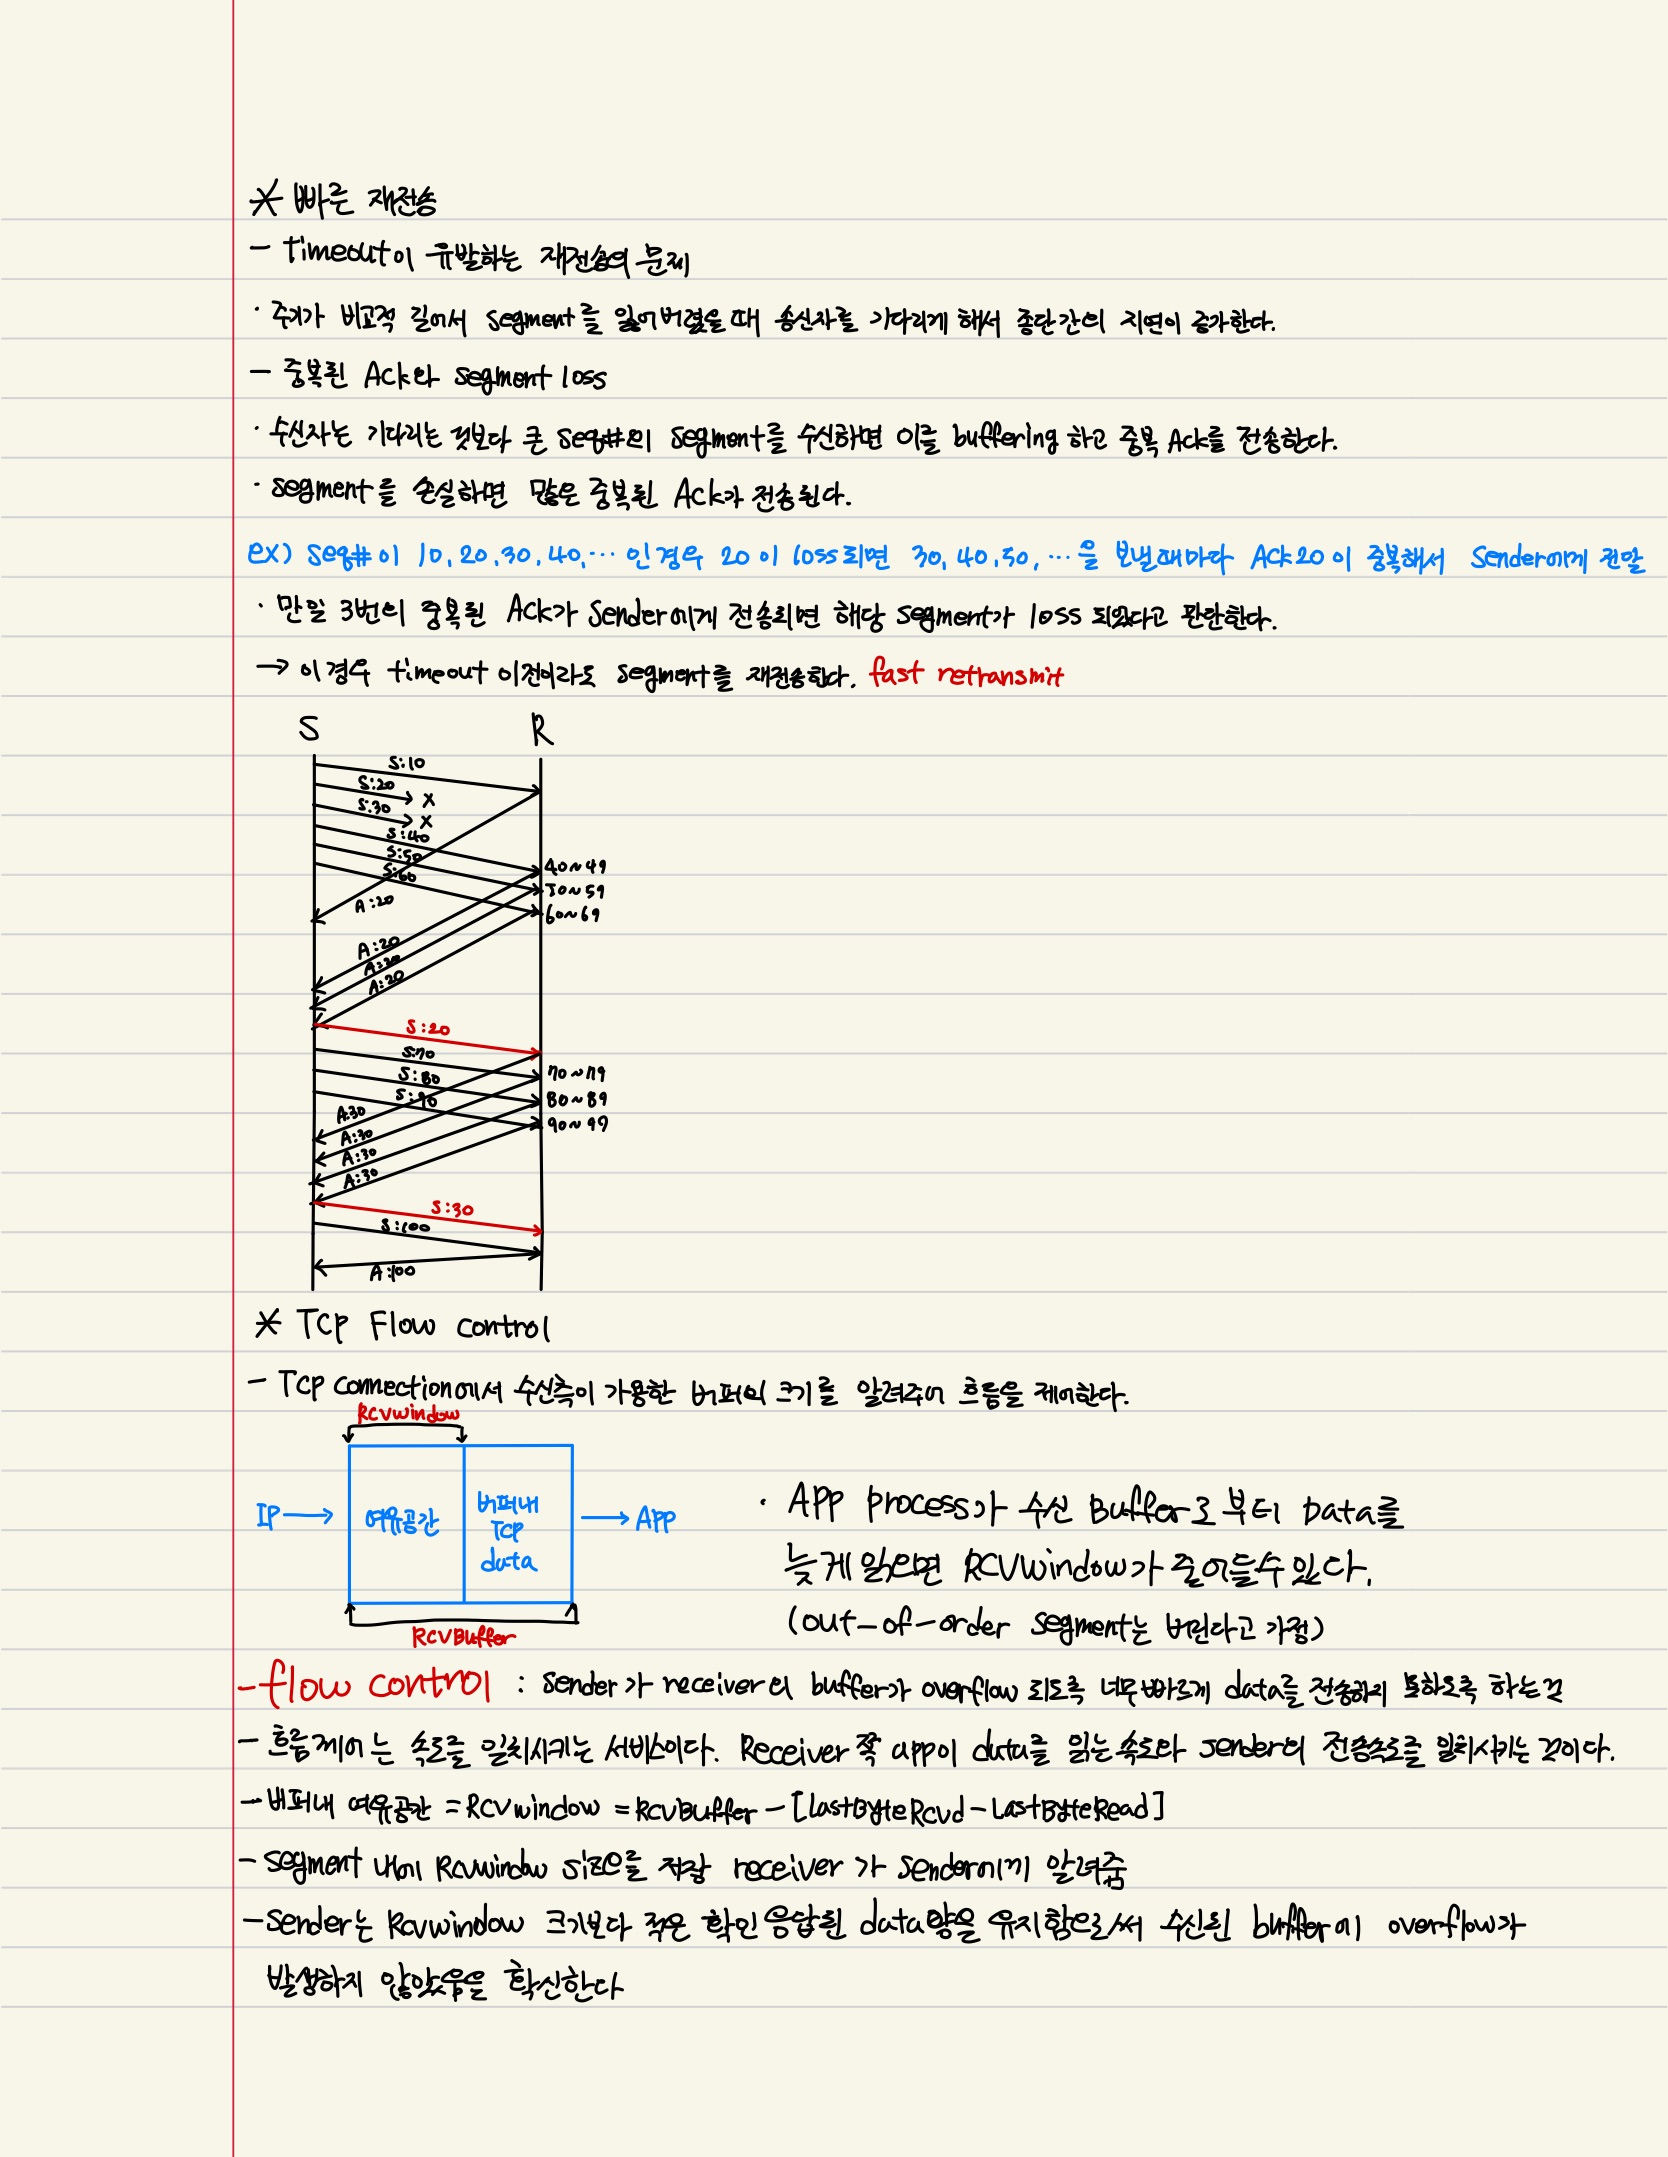 * 빠른 재전송
- timeout이 유발하는 재전송의 문제
· 주기가 비교적 길어서 segment를 잃어버렸을 때 송신자를 기다리게 해서 종단간의 지연이 증가한다.
- 중복된 Ack와 segment loss
· 수신자는 기다리는 것보다 큰 seq#의 segment를 수신하면 이를 buffering 하고 중복 Ack를 전송한다.
· segment를 손실하면 많은 중복된 Ack가 전송된다.
ex) seq#이 10, 20, 30, 40, … 인경우 20이 loss되면 30, 40, 50, … 을 보낼때마다 Ack20이 중복해서 sender에게 전달
· 만일 3번의 중복된 Ack가 sender에게 전송되면 해당 segment가 loss 되었다고 판단한다.
→ 이경우 timeout 이전이라도 segment를 재전송한다. fast retransmit
S R
S:10
S:20 x
S:30 x
S:40
S:50
S:60
40~49
50~59
60~69
A:20
A:20
A:20
A:20
S:20
S:70
S:80
S:90
70~79
80~89
90~99
A:30
A:30
A:30
A:30
S:30
S:100
A:100
* TCP Flow control
- TCP connection에서 수신측이 가용한 버퍼의 크기를 알려주어 흐름을 제어한다.
RCVwindow
IP → 여유공간 버퍼내 TCP data → APP
RCVBuffer
· APP process가 수신 Buffer로 부터 Data를
늦게 읽으면 RCVWindow가 줄어들수 있다.
(out-of-order segment는 버린다고 가정)
- flow control : sender가 receiver의 buffer가 overflow 되도록 너무빠르게 data를 전송하지 못하도록 하는것
- 흐름제어는 속도를 일치시키는 서비스이다. Receiver쪽 app이 data를 읽는 속도와 sender의 전송속도를 일치시키는 것이다.
- 버퍼내 여유공간 = RCVwindow = RCVBuffer - [LastByteRcvd - LastByteRead]
- segment 내에 Rcvwindow size를 저장 receiver가 sender에게 알려줌
- Sender는 Rcvwindow 크기보다 적은 확인 응답된 data양을 유지함으로써 수신된 buffer에 overflow가
발생하지 않았음을 확신한다